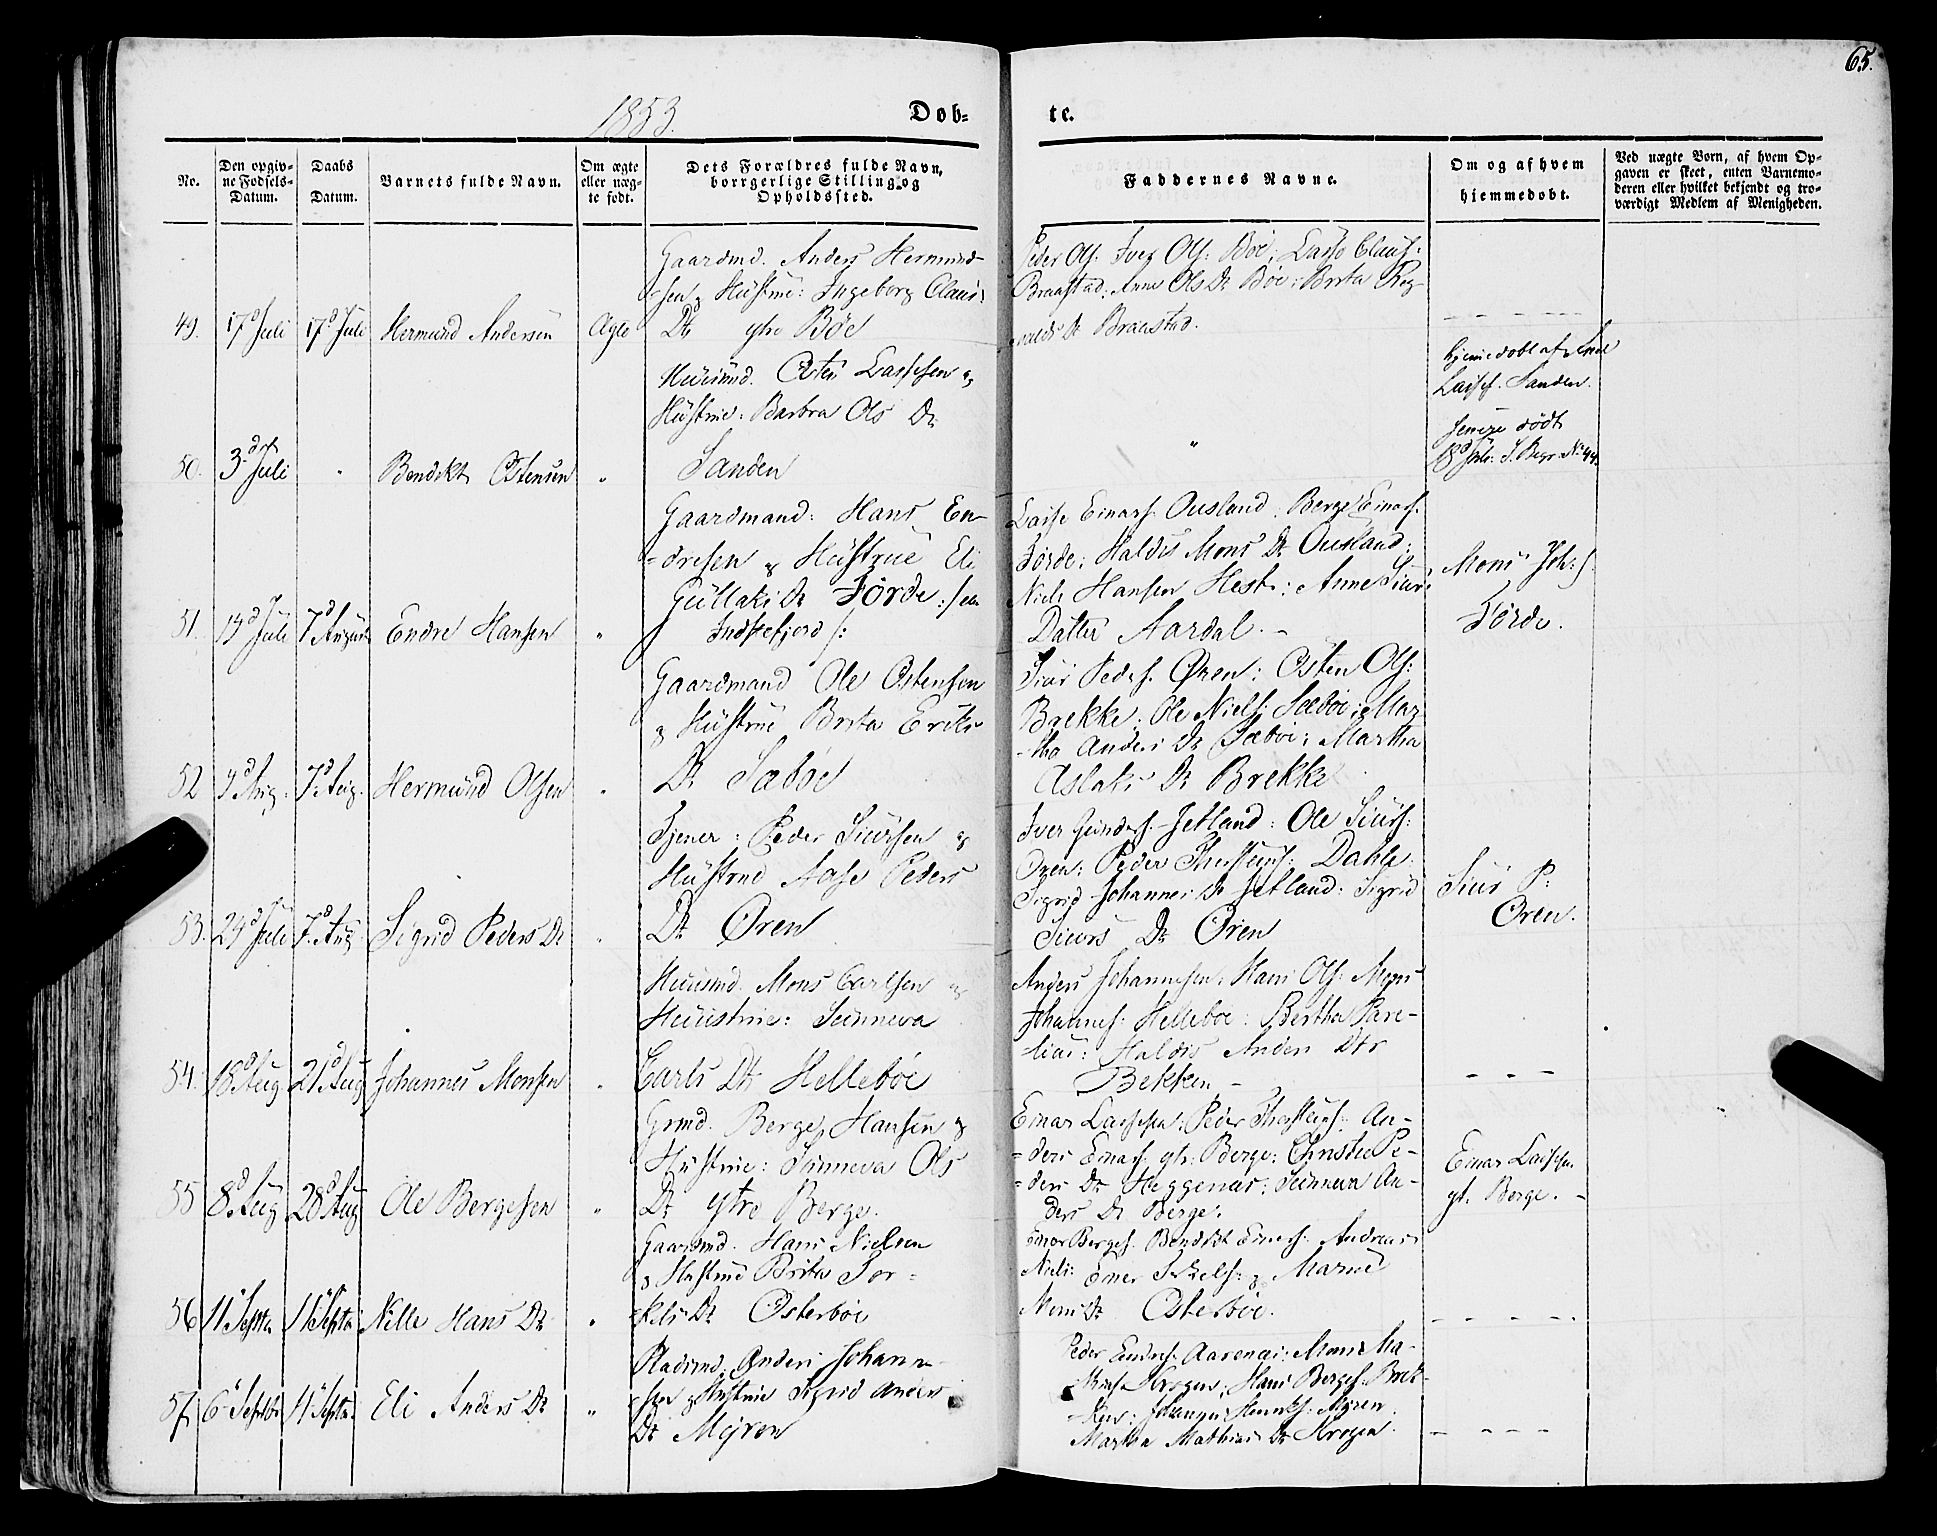 65.
1853.
Døb-
te.
No.
Den opgiv-
ne Fødsels-
Datum.
Daabs
Datum.
Barnets fulde Navn.
Om ægte
eller uæg-
te født.
Dets Forældres fulde Navn,
borrgerlige Stilling og
Opholdssted.
Faddernes Navne.
Om og af hvem
hiemmedøbt.
Ved uægte Børn, af hvem Op-
gaven er skeet, enten Barnemo-
deren eller hvilket bekjendt og tro-
værdigt Medlem af Menigheden.
49. 17d Juli 17d Juli Hermund Andersen Ægte
Gaardmd. Anders Hermund-
-sen & Hustrue: Ingeborg Claus:
Dr ytre Bøe
Peder Ols: Iver Ols: Bøe; Lasse Claus:
Braastad; Anne Ols Dr Bøe; Brita Rog-
nalds Dr Braastad.
50. 3d Juli " Bendikt Østensen "
Huusmd. Østen Lassesen &
Hustrue: Barbra Ols Dr
Sanden
"
hjemmedøbt af
Lasses. Sanden.
senere død
51. 19d Juli 7d August Endre Hansen "
Gaardmand: Hans En-
-dresen & Hustrue Eli
Gullaks Dr Førde:/
Indrefjord/:
Lasse Einars. Ousland; Berge Einars.
Førde; Haldis Mons Dr Ousland;
Niels Hansen Hest; Anne Siurs
Datter Aardal. -
Mons Joh:s.
Førde.
52 4d Aug. 7d Aug. Hermund Olsen "
Gaardmand Ole Østensen
& Hustrue Brita Eriks
Dr Sæbøe
Siur Peders. Øren; Østen Ols:
Brekke; Ole Niels: Sæbøe; Mar-
-tha Anders Dr Sæbøe; Martha
Aslaks Dr Brekke
53. 24d Juli 7d Aug Sigrid Peders Dr "
Tjener: Peder Siursen &
Hustrue Aase Peders
Dr Øren
Iver Gunders. Jetland; Ole Siurs:
Øren; Peder Thorsteins: Dahle;
Sigrid Johannes Dr Jetland; Sigrid
Siurs Dr Øren
Siur P:
Øren.
54. 18d Aug 21d Aug Johannes Monsen "
Huusmd. Mons Carlsen &
Huustrue: Sunneva
Carls Dr Hellebøe
Anders Johannesen; Hans Ols: Mons
Johannes: Hellebøe; Bertha
Haldis Anders Dtr
Bekken -
- - -
55 8d Aug 28d Aug Ole Bergesen "
Grmd. Berge Hansen &
Hustrue: Sunneva Ols
Dr ytre Berge.
Einar Lassesen; Peder Thorsteins: An-
-ders Einars. ytr: Berge; Christie Pe-
-ders Dr Heggenæs; Sunneva An-
ders Dr Berge.
Einar Lassesen
yt. Berge. -
56 11 Septbr 11 Septbr Nille Hans Dr "
Gaardmd. Hans Nielsen
& Hustrue Brita Tor-
-kels Dr Østerbøe
Einar Berges. Bendikt Einars. Andreas
Niels: Einer Torkels: & Marie
Mons Dr Østerbøe.
- - - - -
57. 6 Septbr 11 Septbr. Eli Anders Dr "
Pladsmd. Anders Johann-
-sen & Hustrue Sigrid Anders
Dr Myren
Peder Endres. Aarenæs; Mons Ma-
Krogen; Hans Berges. Brek-
-ken; Johannes Henriks: Myren
Martha Mathias Dr Krogen.
- - - -